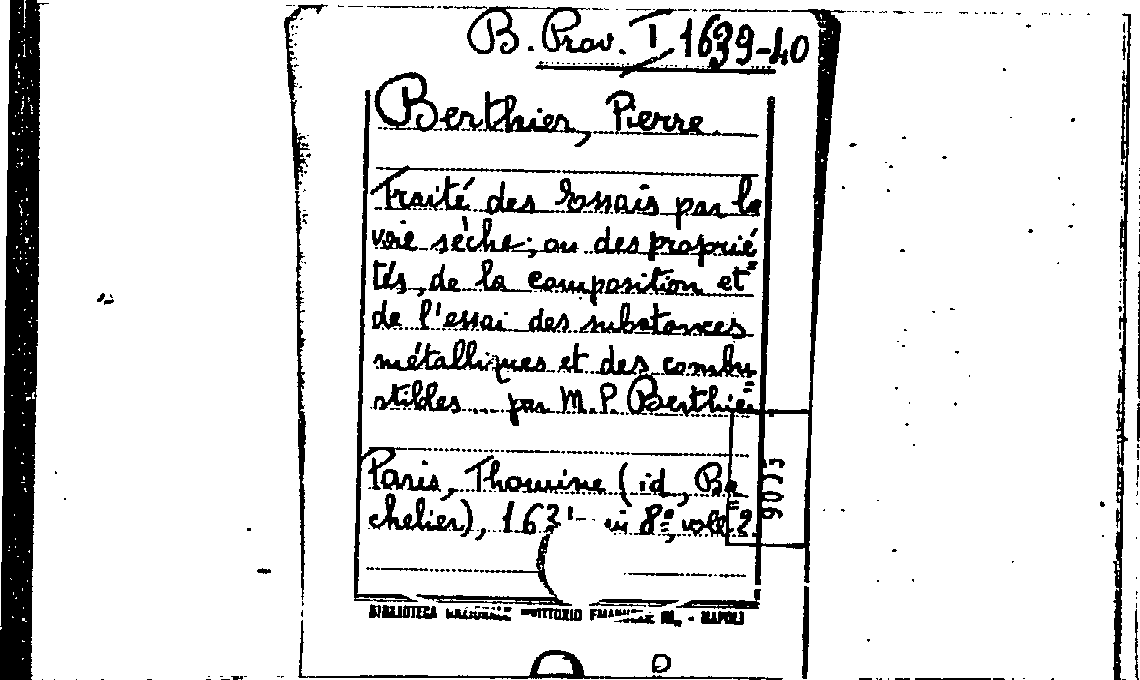 B. Prov. I 1639-40
Berthier, Pierre
Traité des Essais par la
voie sèche; ou des proprié
tés, de la composition et
de l'essai des substances
métalliques et des combu=
stibles... par M. P. Berthier
Paris, Thomine (id, Ba=
chelier), 163 in 8º, voll. 2.
9075
BIBLIOTECA NAZIONALE VITTORIO EMANUELE III - NAPOLI